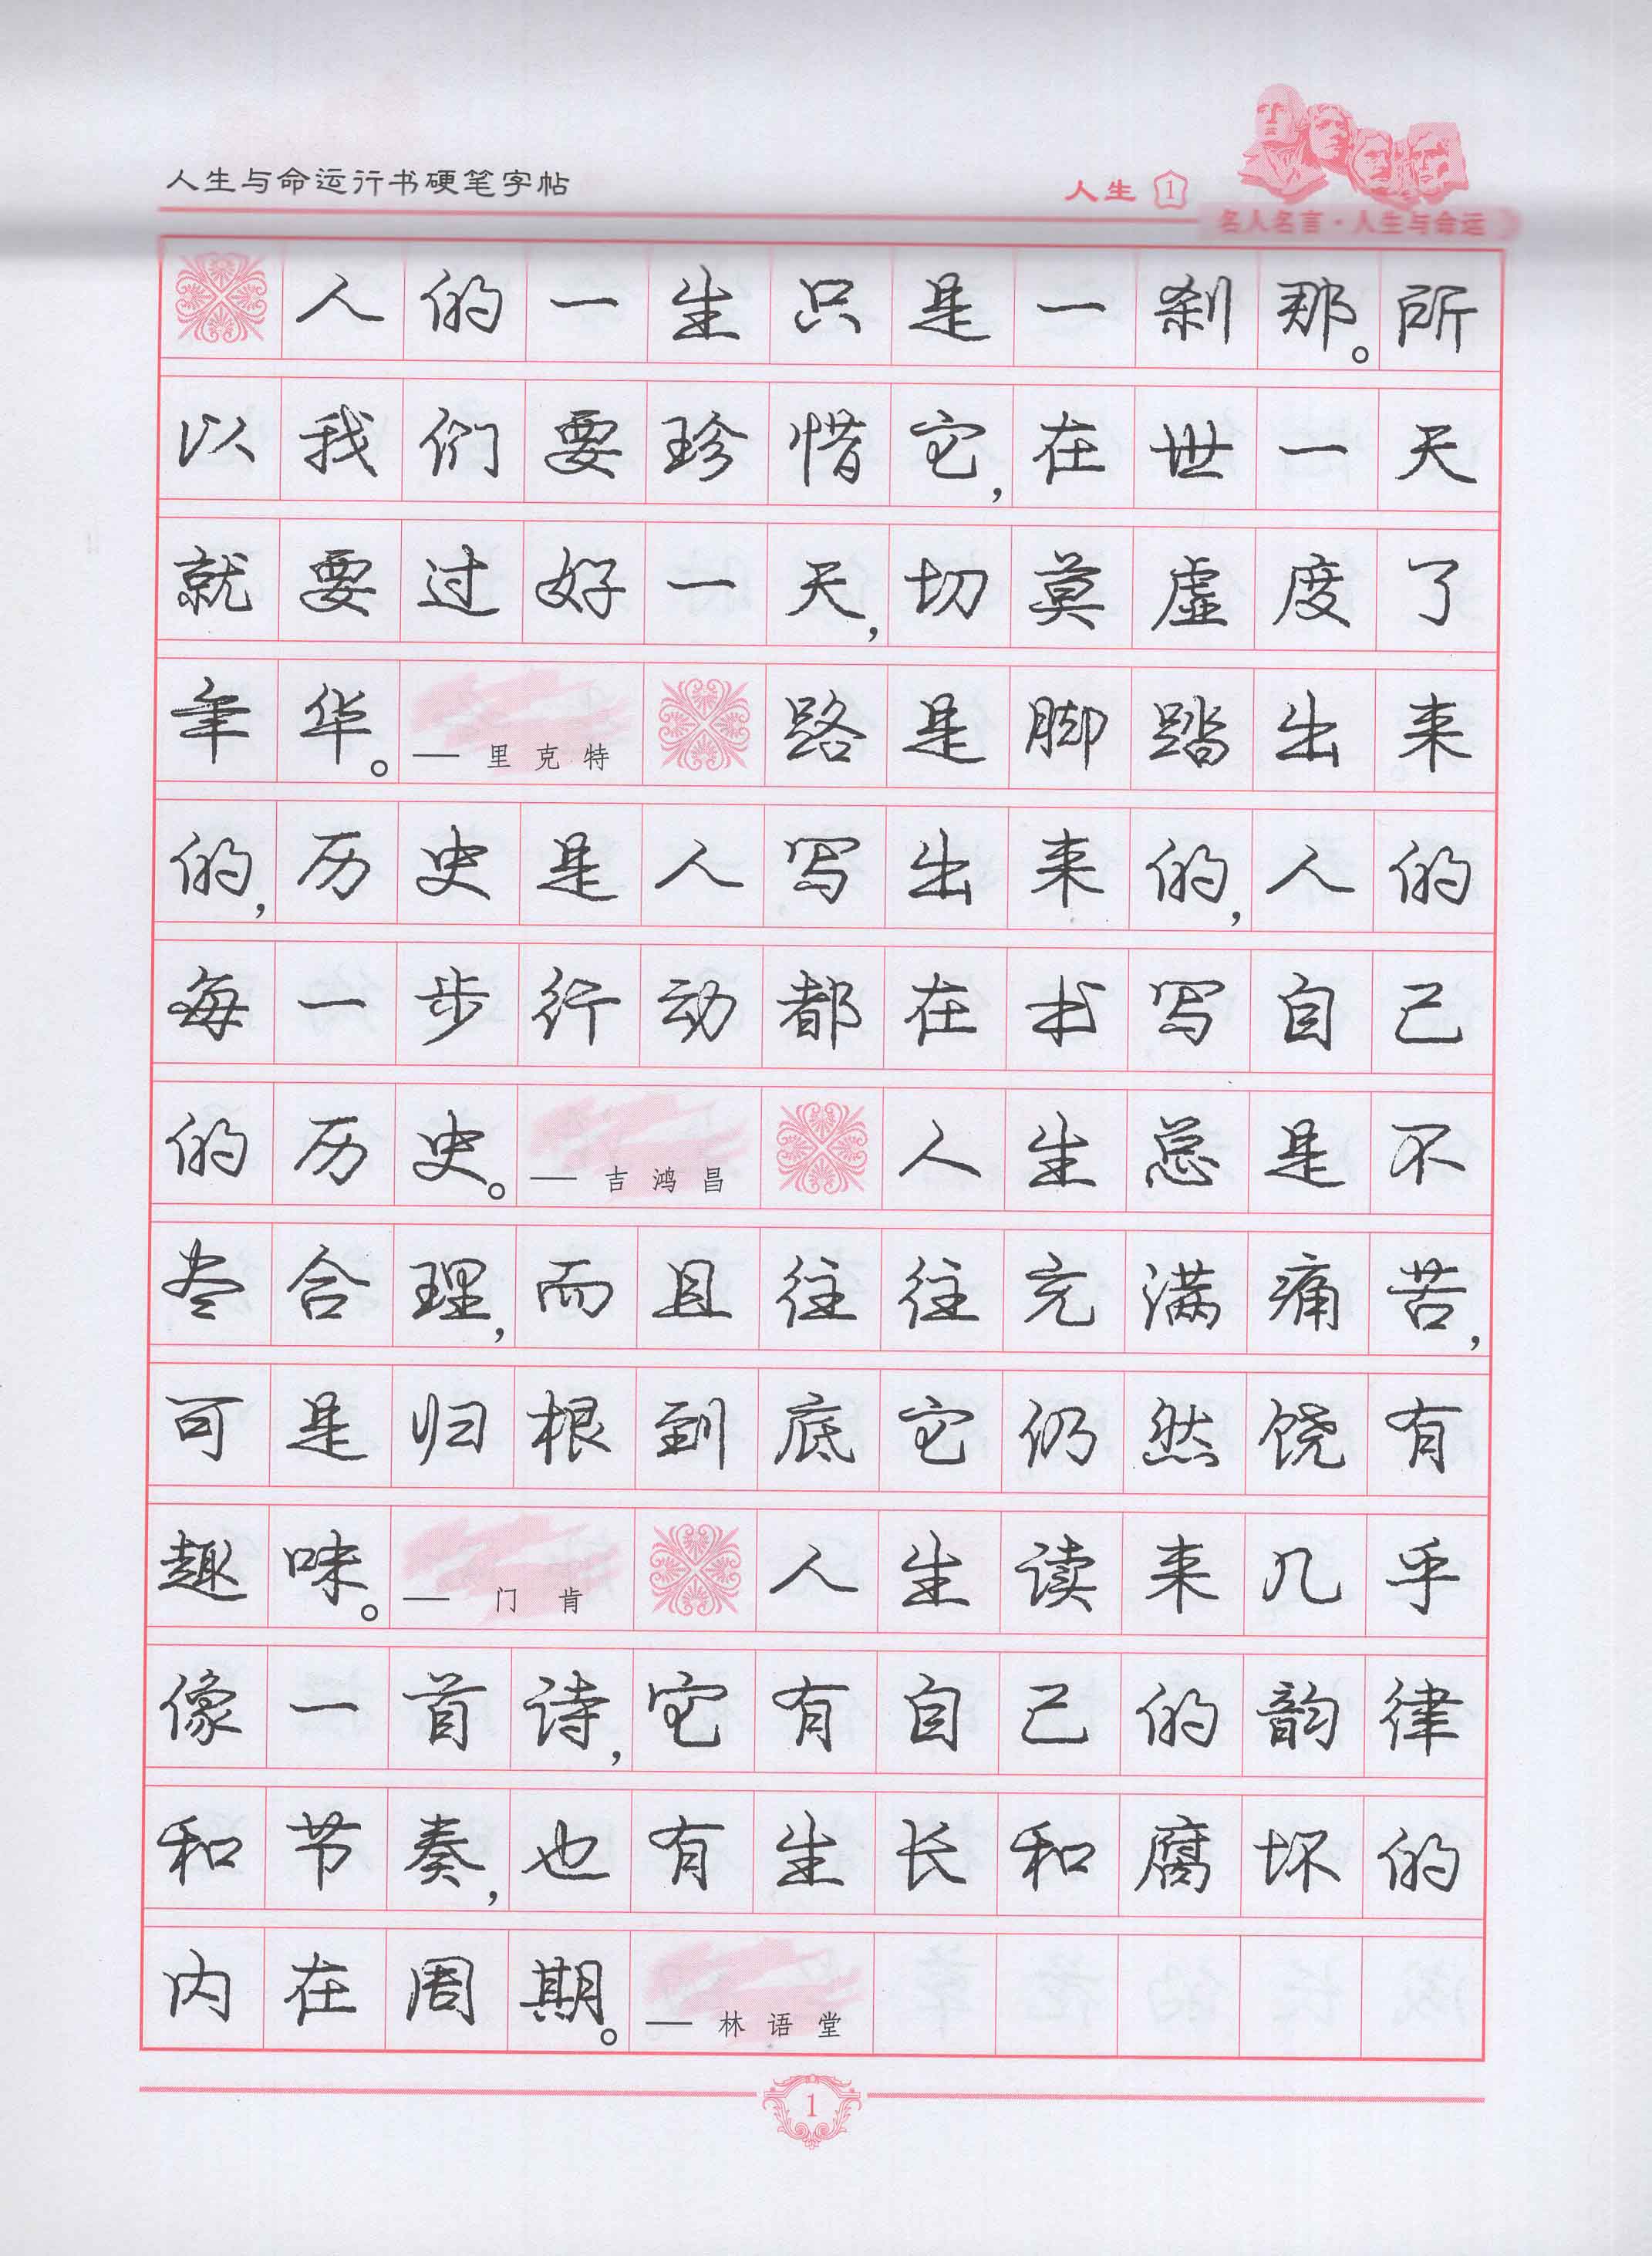 人生与命运行书硬笔字帖
人生 1
名人名言·人生与命运
人的一生只是一刹那。所
以我们要珍惜它,在世一天
就要过好一天,切莫虚度了
年华。—里克特 路是脚踏出来
的,历史是人写出来的,人的
每一步行动都在书写自己
的历史。—吉鸿昌 人生总是不
尽合理,而且往往充满痛苦,
可是归根到底它仍然饶有
趣味。—门肯 人生读来几乎
像一首诗,它有自己的韵律
和节奏,也有生长和腐坏的
内在周期。—林语堂
1